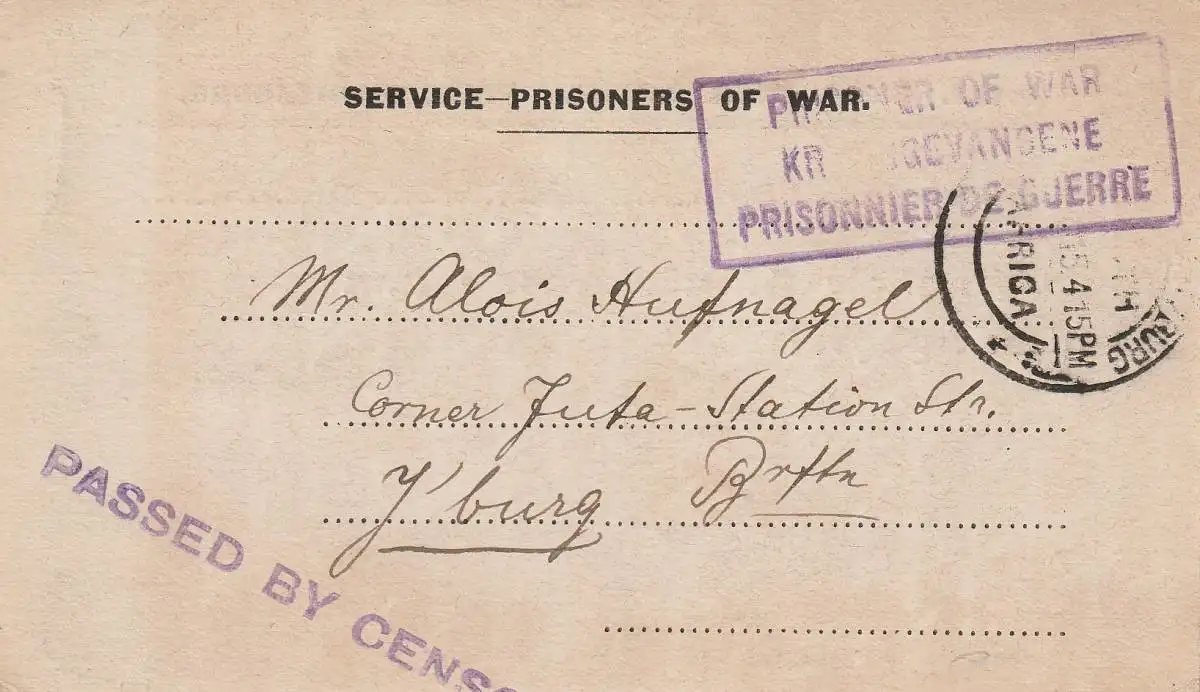 SERVICE—PRISONERS OF WAR.
PRISONER OF WAR
KR GSGEVANGENE
PRISONNIER DE GUERRE
AFRICA
15.4.15PM
BURG
Mr. Alois Hufnagel
Corner Juta-Station Str.
J'burg Brftn
PASSED BY CENSO